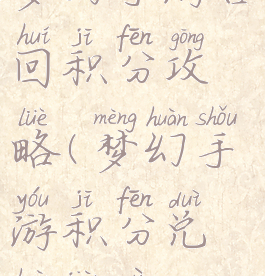 huí jī fēn gōng
回积分攻
lüè mèng huàn shǒu
略(梦幻手
yóu jī fēn duì
游积分兑